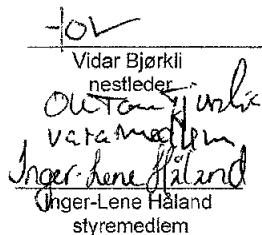 Vidar Bjørkli
nestleder
varamedlem
Inger-Lene Håland
Inger-Lene Håland
styremedlem